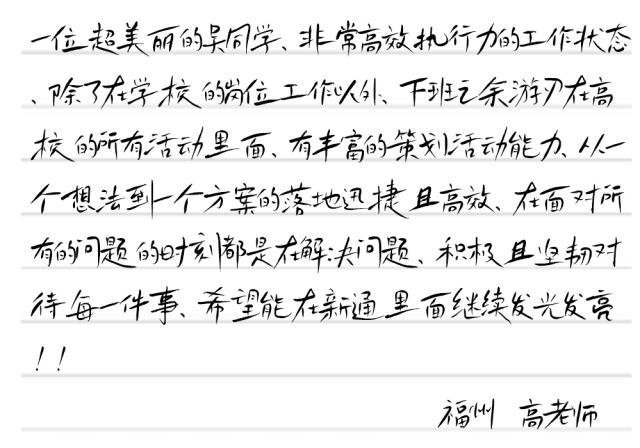 一位超美丽的吴同学、非常高效执行力的工作状态
、除了在学校的岗位工作以外、下班之余游刃在高
校的所有活动里面、有丰富的策划活动能力、从一
个想法到一个方案的落地迅捷且高效、在面对所
有的问题的时刻都是在解决问题、积极且坚韧对
待每一件事、希望能在新通里面继续发光发亮
！！
福州 高老师